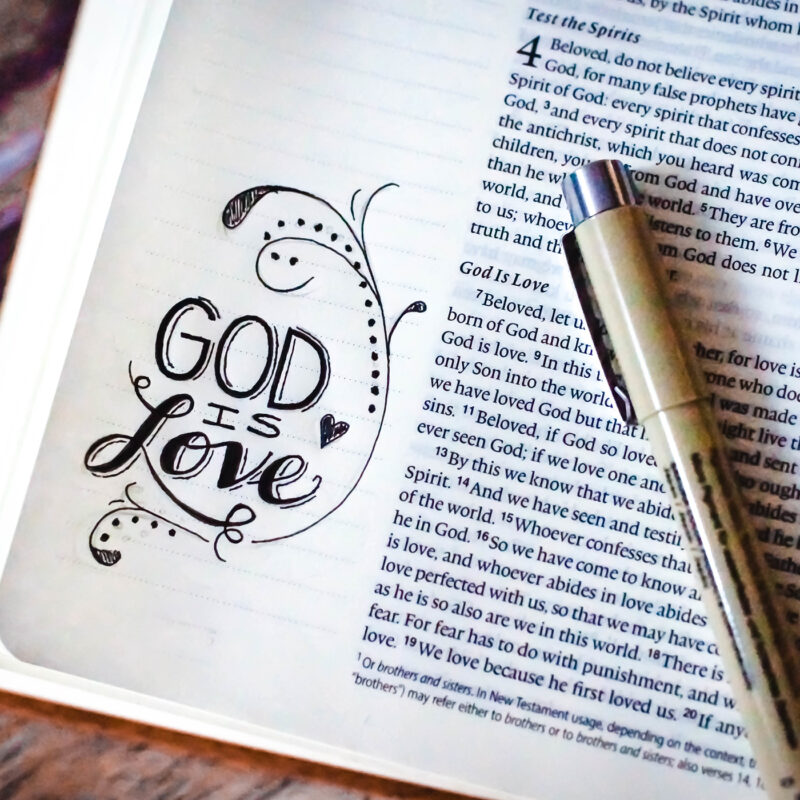 GOD
IS
Love
abides in
us, by the Spirit whom
Test the Spirits
4 Beloved, do not believe every spirit
God, for many false prophets have
Spirit of God: every spirit that confesses
God, 3 and every spirit that does not
the antichrist, which you heard was
children, you from God and have
than he world. 5 They are
world, and listens to them. 6 We
to us; God does not
truth and
God Is Love
7 Beloved, let for love is
born of God and one who
God is love. 9 In this was made
only Son into the world live
we have loved God but that and sent
sins. 11 Beloved, if God so
ever seen God; if we love one abides
13 By this we know that we
Spirit. 14 And we have seen and
of the world. 15 Whoever confesses
he in God. 16 So we have come to know
is love, and whoever abides in love abides
love perfected with us, so that we may have
as he is so also are we in this world. 18 There is
fear. For fear has to do with punishment, and
love. 19 We love because he first loved us. 20 If
1 Or brothers and sisters. In New Testament usage, depending on the context,
"brothers") may refer either to brothers or to brothers and sisters; also verses 14,